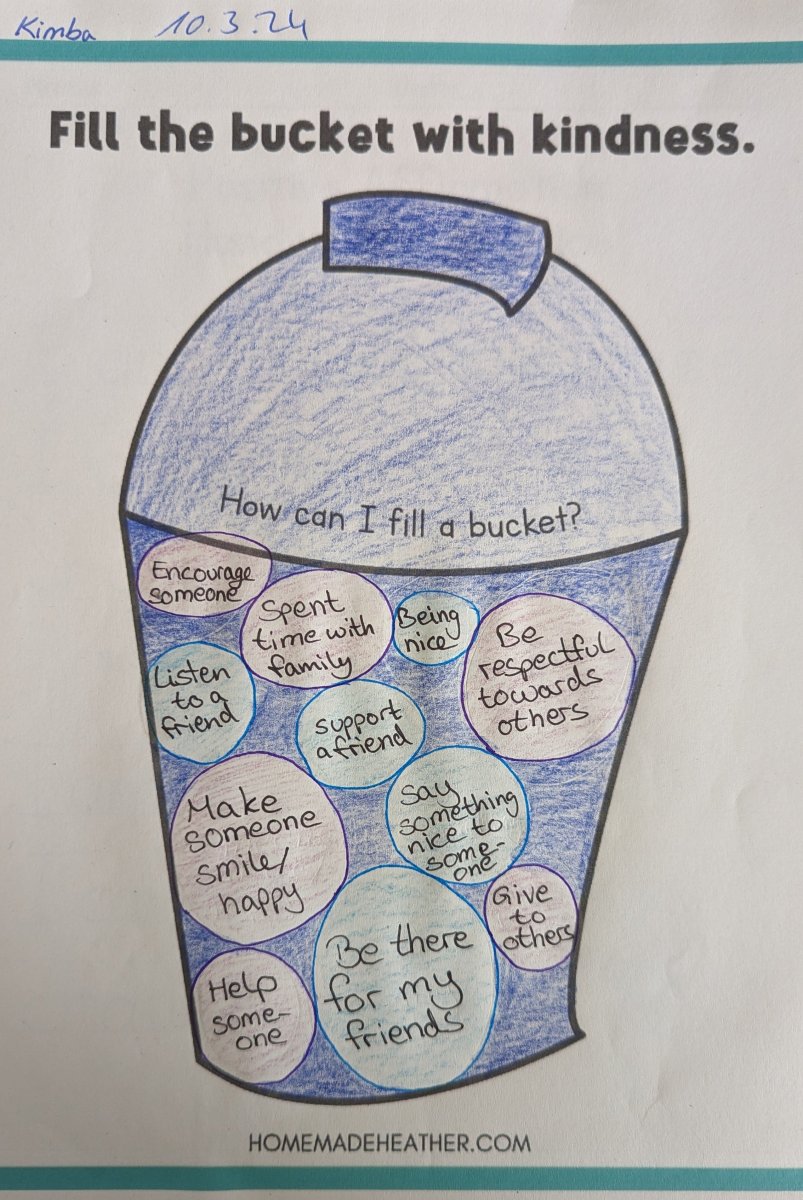 Kimba 10.3.24
Fill the bucket with kindness.
How can I fill a bucket?
Encourage
someone
Spent
time with
family
Being
nice
Be
respectful
towards
others
Listen
to a
friend
support
a friend
Make
someone
smile/
happy
say
something
nice to
some-
one
Give
to
others
Be there
for my
friends
Help
some-
one
HOMEMADEHEATHER.COM